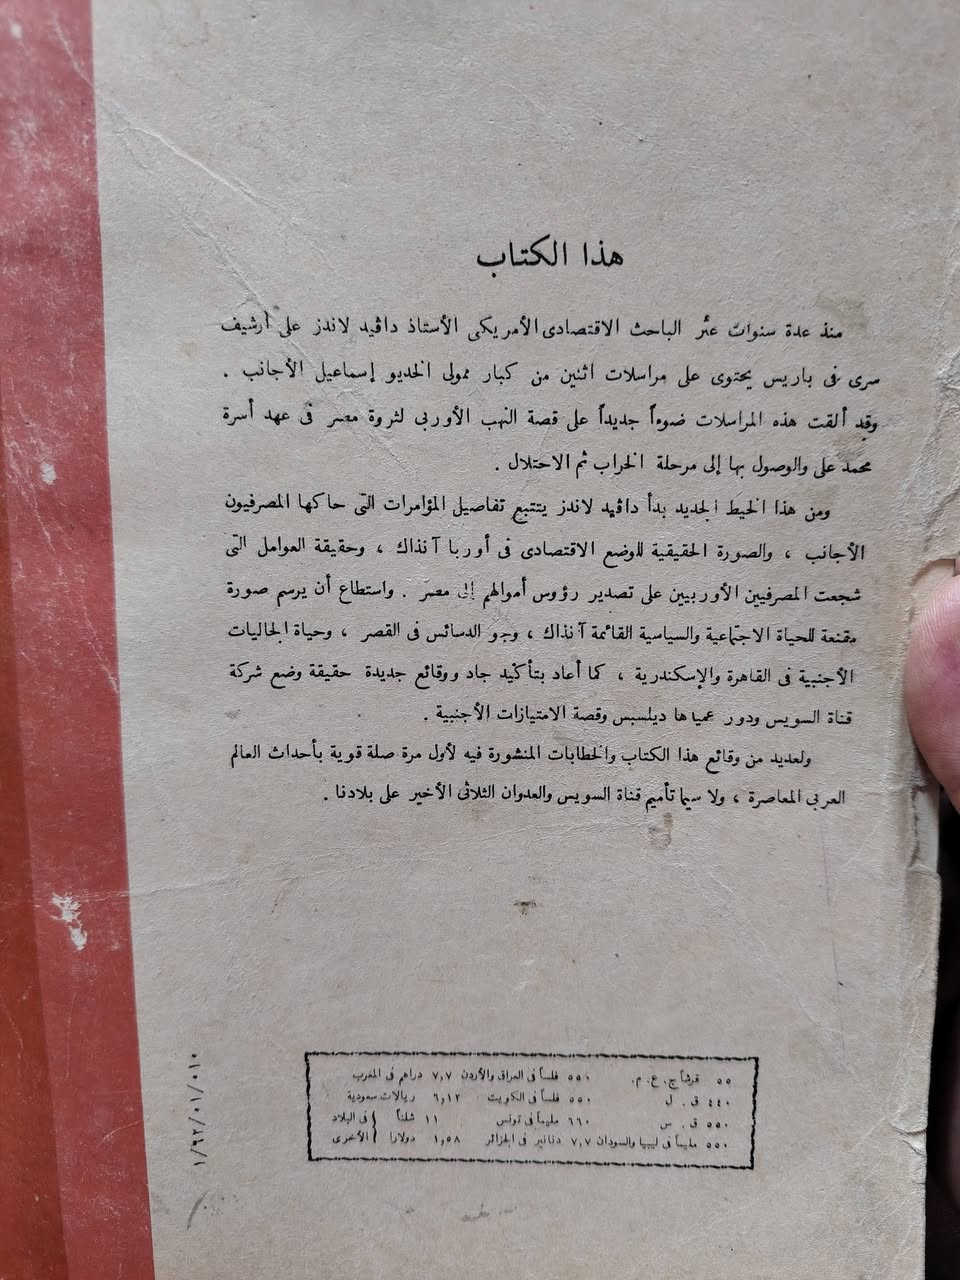 هذا الكتاب
منذ عدة سنوات عثر الباحث الاقتصادى الأمريكى الأستاذ داڤيد لاندز على أرشيف
سرى فى باريس يحتوى على مراسلات اثنين من كبار ممولى الخديو إسماعيل الأجانب .
وقد ألقت هذه المراسلات ضوءاً جديداً على قصة النهب الأوربى لثروة مصر فى عهد أسرة
محمد على والوصول بها إلى مرحلة الخراب ثم الاحتلال .
ومن هذا الخيط الجديد بدأ داڤيد لاندز يتتبع تفاصيل المؤامرات التى حاكها المصرفيون
الأجانب ، والصورة الحقيقية للوضع الاقتصادى فى أوربا آنذاك ، وحقيقة العوامل التى
شجعت المصرفيين الأوربيين على تصدير رؤوس أموالهم إلى مصر . واستطاع أن يرسم صورة
مقنعة للحياة الاجتماعية والسياسية القائمة آنذاك ، وجو الدسائس فى القصر ، وحياة الجاليات
الأجنبية فى القاهرة والإسكندرية ، كما أعاد بتأكيد جاد ووقائع جديدة حقيقة وضع شركة
قناة السويس ودور عميدها ديلسبس وقصة الامتيازات الأجنبية .
ولعديد من وقائع هذا الكتاب والخطابات المنشورة فيه لأول مرة صلة قوية بأحداث العالم
العربى المعاصرة ، ولا سيما تأميم قناة السويس والعدوان الثلاثى الأخير على بلادنا .
٥٥ قرشاً ج . ع . م . ٥٥٠ فلساً فى العراق والأردن ٧,٧ دراهم فى المغرب
٤٤٠ ق . ل ٥٥٠ فلساً فى الكويت ٦,١٢ ريالات سعودية
٥٥٠ ق . س ٦٦٠ مليماً فى تونس ١١ شلناً فى البلاد
٥٥٠ مليماً فى ليبيا والسودان ٧,٧ دنانير فى الجزائر ١,٥٨ دولارا الأخرى